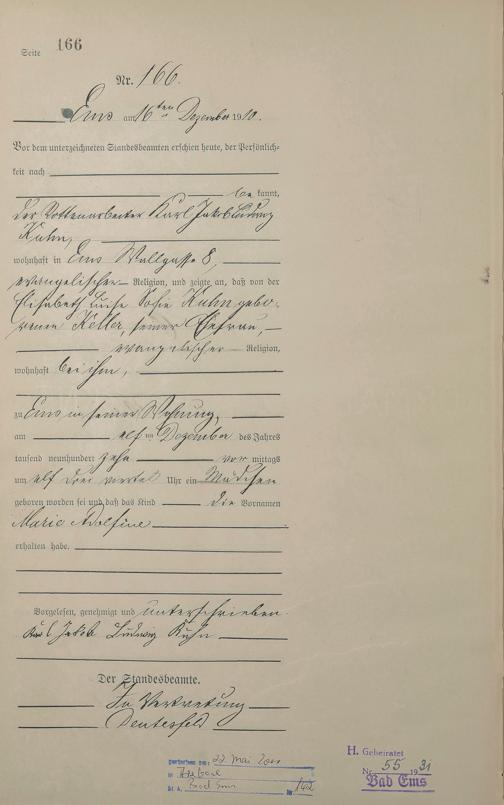 Seite 166
Nr. 166.
Ems am 16ten Dezember 1910.
Vor dem unterzeichneten Standesbeamten erschien heute, der Persönlich-
keit nach
be kannt,
der Rottenarbeiter Karl Jakob Ludwig
Kuhn,
wohnhaft in Ems Wallgasse 8,
evangelischer Religion, und zeigte an, daß von der
Elisabeth Luise Sofie Kuhn gebo-
renen Keller, seiner Ehefrau,
evangelischer Religion,
wohnhaft bei ihm,
zu Ems in seiner Wohnung,
am elf ten Dezember des Jahres
tausend neunhundert zehn vor mittags
um elf drei viertel Uhr ein Mädchen
geboren worden sei und daß das Kind die Vornamen
Marie Adolfine
erhalten habe.
Vorgelesen, genehmigt und unterschrieben.
Karl Jakob Ludwig Kuhn
Der Standesbeamte.
In Vertretung
gestorben am: 22 Mai
St. A. Bad Ems Nr. 142
H. Geheiratet
Nr. 55 1931
Bad Ems